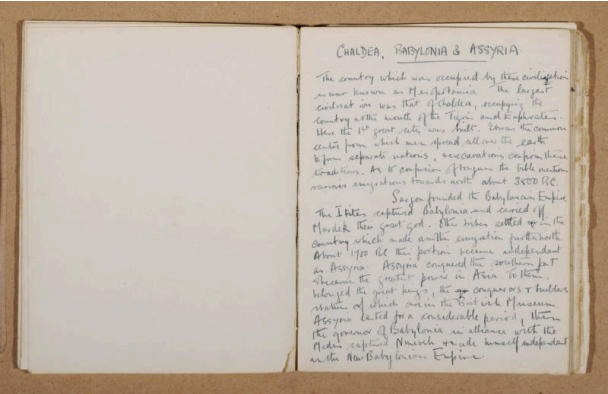 CHALDEA, BABYLONIA & ASSYRIA
The country which was occupied by these civilization
is now known as Mesopotamia The largest
civilisation was that of Chaldea, occupying the
country at the mouth of the Tigris and Euphrates.
Here the 1st great city was built. It was the common
center from which men spread all over the earth
to form separate nations, excavations confirm these
traditions. As to confusion of tongues the bible mentions
various emigrations towards north about 3800 B.C.
Sargon founded the Babylonian Empire
The captured Babylonia and carried off
Marduk their great god. Other tribes settled in the
country which made another emigration further north
About 1700 BC this portion became independent
as Assyria. Assyria conquered the southern part
& became the greatest power in Asia. To them
belonged the great kings, the conquerors & builders
statues of which are in the British Museum
Assyria lasted for a considerable period, then
the governor of Babylonia in alliance with the
Medes captured Nineveh & made himself independent
as the New Babylonian Empire